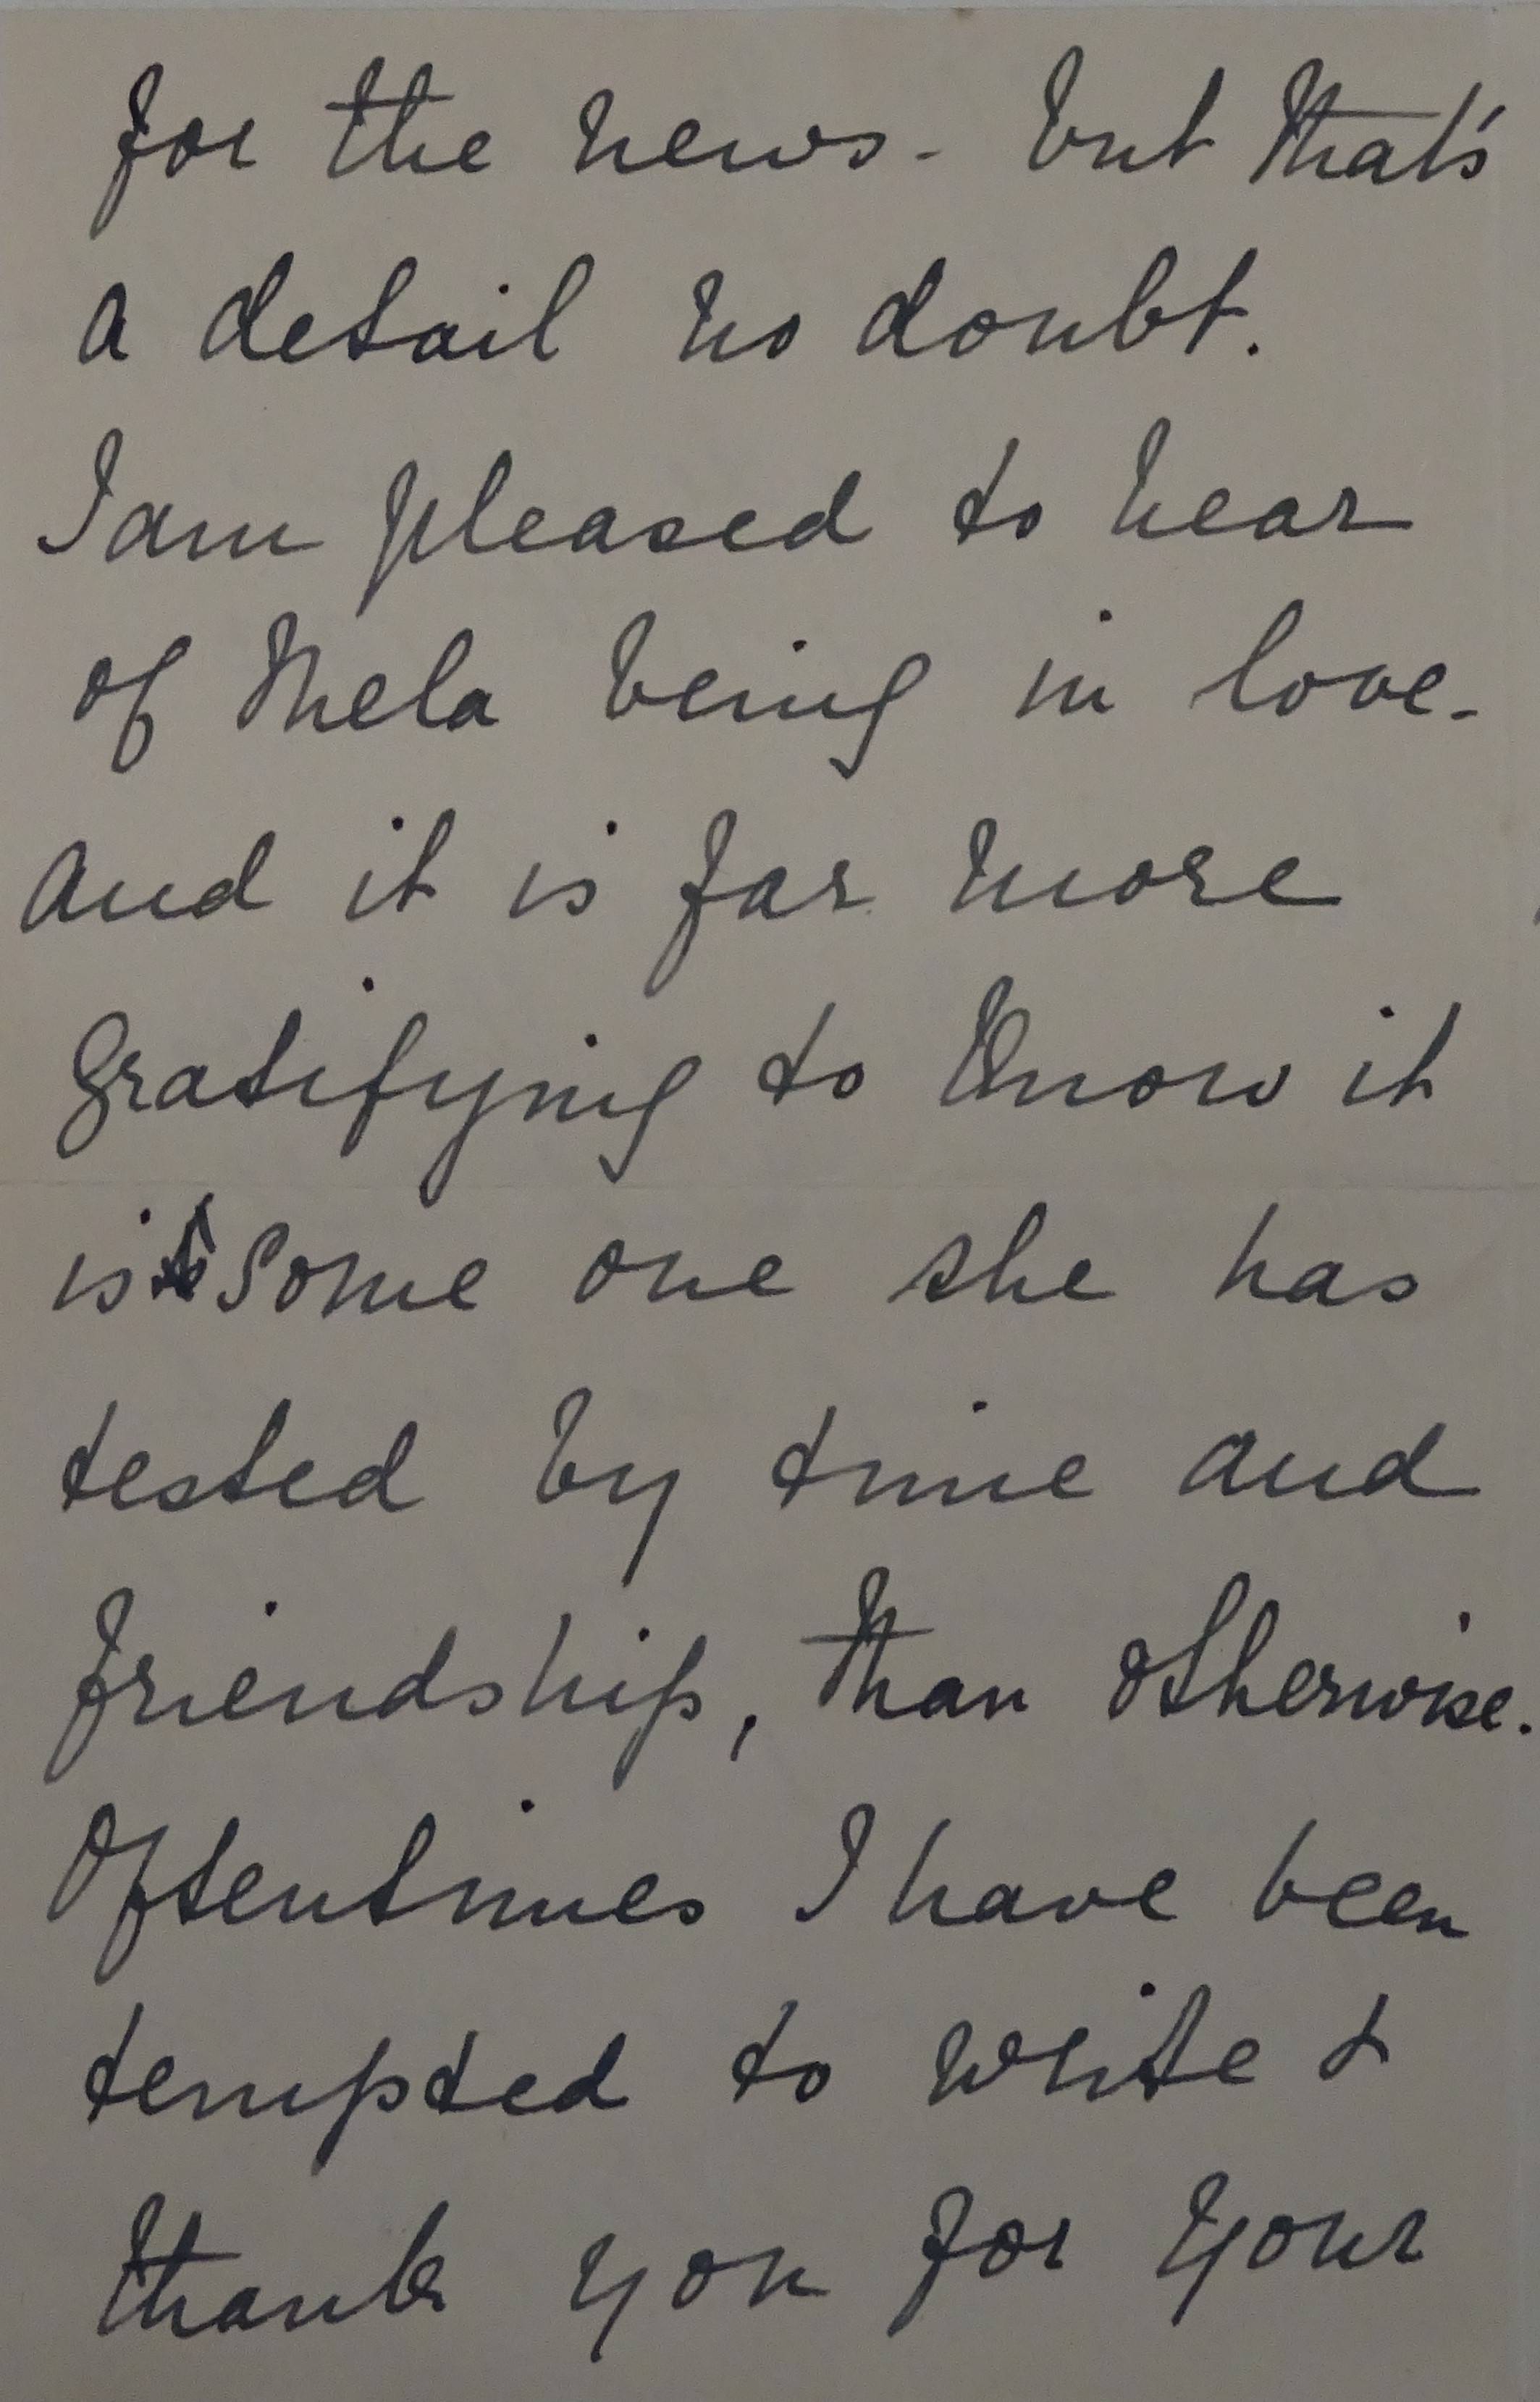 for the news - but that's
a detail no doubt.
I am pleased to hear
of Mela being in love -
And it is far more
gratifying to know it
is some one she has
tested by time and
friendship, than otherwise.
Oftentimes I have been
tempted to write &
thank you for your